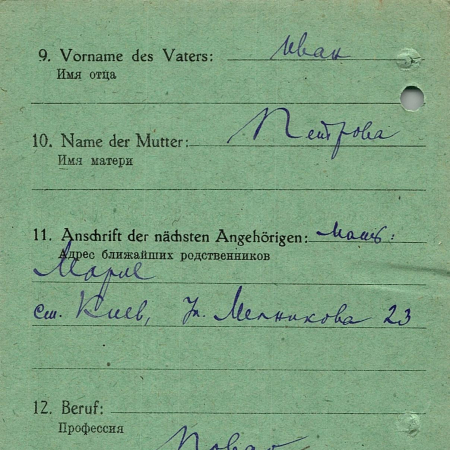 9. Vorname des Vaters: Иван
Имя отца
10. Name der Mutter: Петрова
Имя матери
11. Anschrift der nächsten Angehörigen: Мать:
Адрес ближайших родственников
Марие
ст. Киев, Ул. Мелникова 23
12. Beruf:
Профессия
Повар